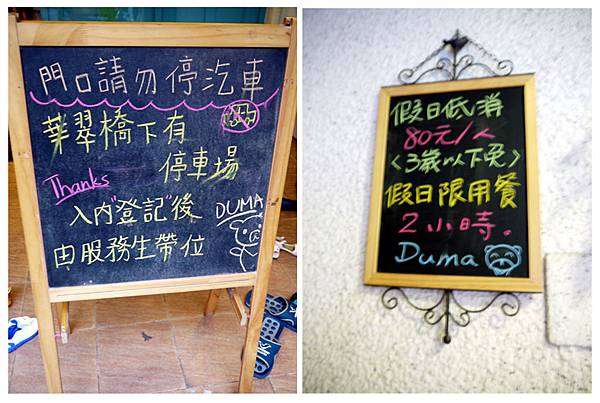 門口請勿停汽車
華翠橋下有
停車場
Thanks
入內"登記"後
DUMA
由服務生帶位
假日低消
80元/人
<3歲以下免>
假日限用餐
2小時。
Duma